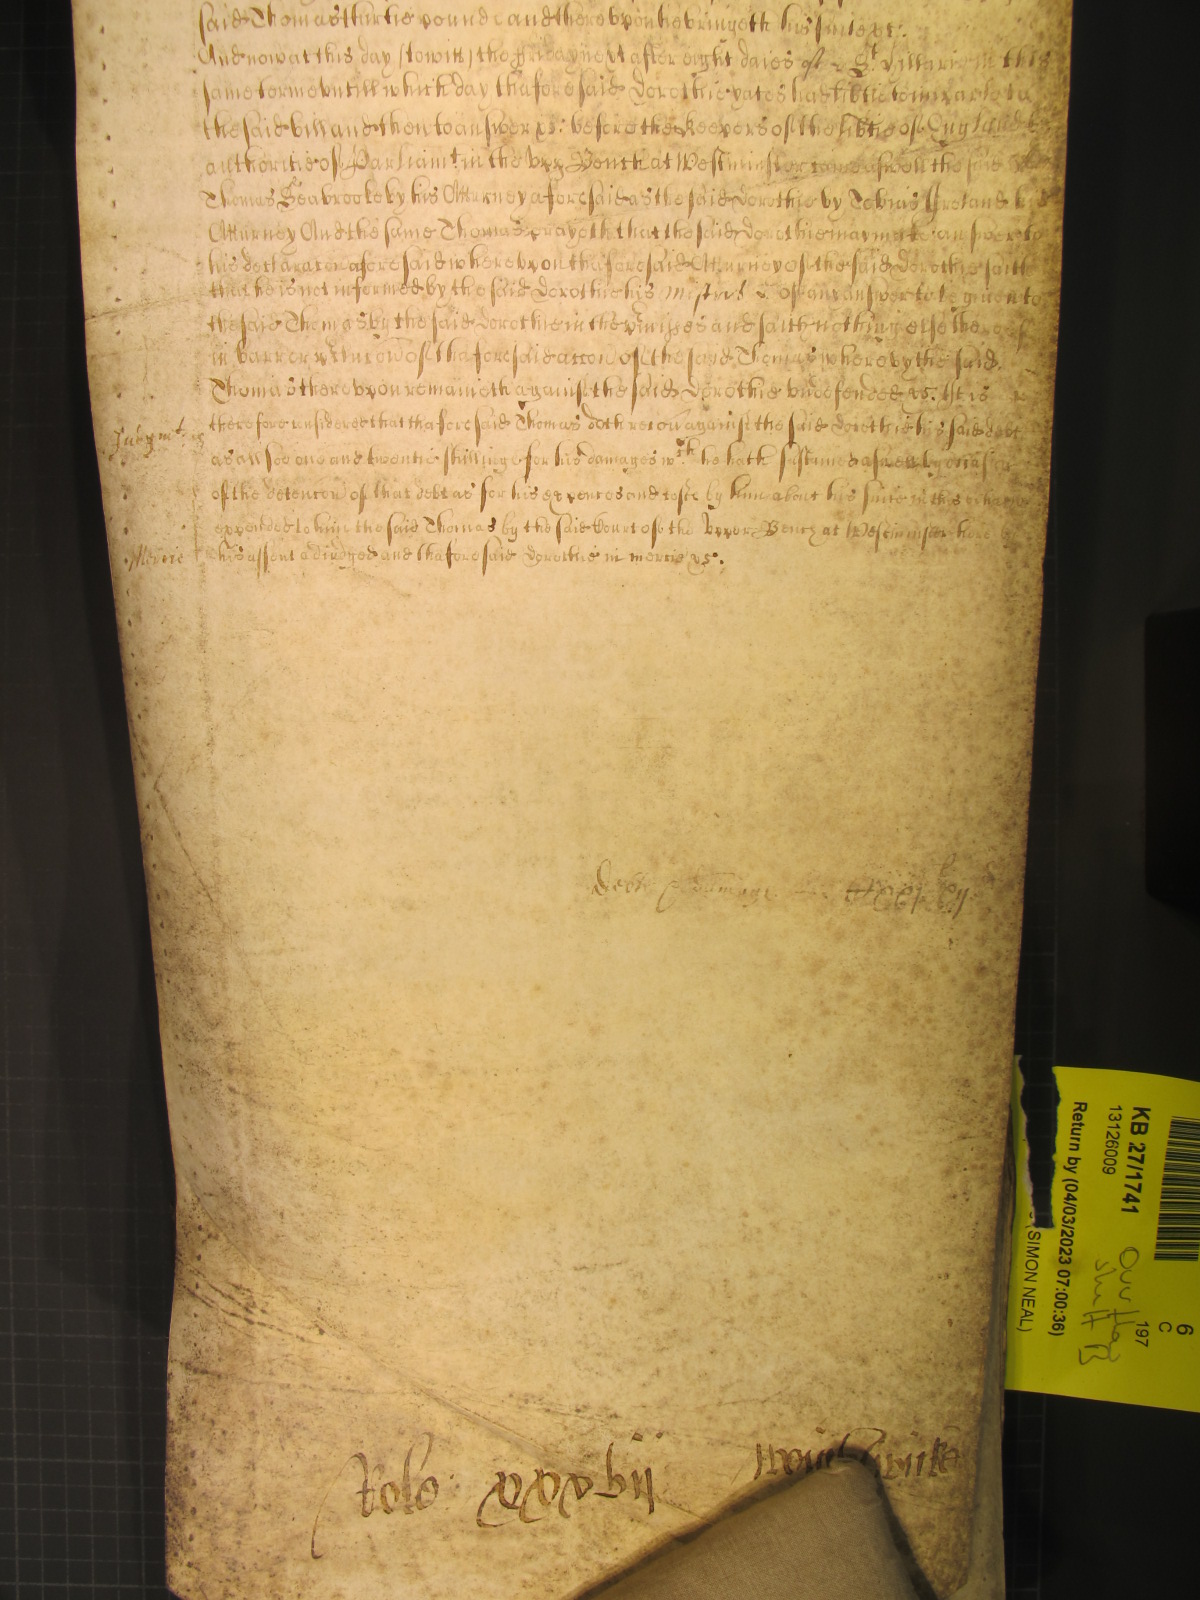 said Thomas thirtie pounds and therevpon he bringeth his suite &c:
And now at this day (to witt) the Friday next after eight daies of St. Hillarie in this
same terme vntill which day thaforesaid Dorothie yates had libtie to imparle to
the said bill and then to answer &c: before the Keepers of the libtie of England by
authoritie of Parliamt. in the vpp Bench at Westminster came aswell the said
Thomas Seabrooke by his Atturney aforesaid as the said Dorothie by Tobias Ireland his
Atturney And the same Thomas prayeth that the said Dorothie may make answer to
his declaracon aforesaid wherevpon thaforesaid Atturney of the said Dorothie saith
that he is not informed by the said Dorothie his Mistris of any answer to be giuen to
the said Thomas by the said Dorothie in the pmisses and saith nothing else thereof
in barr or of thaforesaid accon of the said Thomas whereby the said
Thomas therevpon remaineth against the said Dorothie vndefended &c. It is
Judgmt.
therefore considered that thaforesaid Thomas doth recou against the said Dorothie his said debt
as alsoe one and twentie shillings for his damages wch he hath susteined aswell by occasion
of the detencon of that debt as for his expences and costs by him about his suite in this behalfe
expended to him the said Thomas by the said Court of the Vpper Bench at Westminster here
Mercie
his assent adiudged and thaforesaid Dorothie in mercie &c.
Debt
Rolo
KB 27/1741
13126009
Return by (04/03/2023 07:00:36)
(SIMON NEAL)
197
6
C